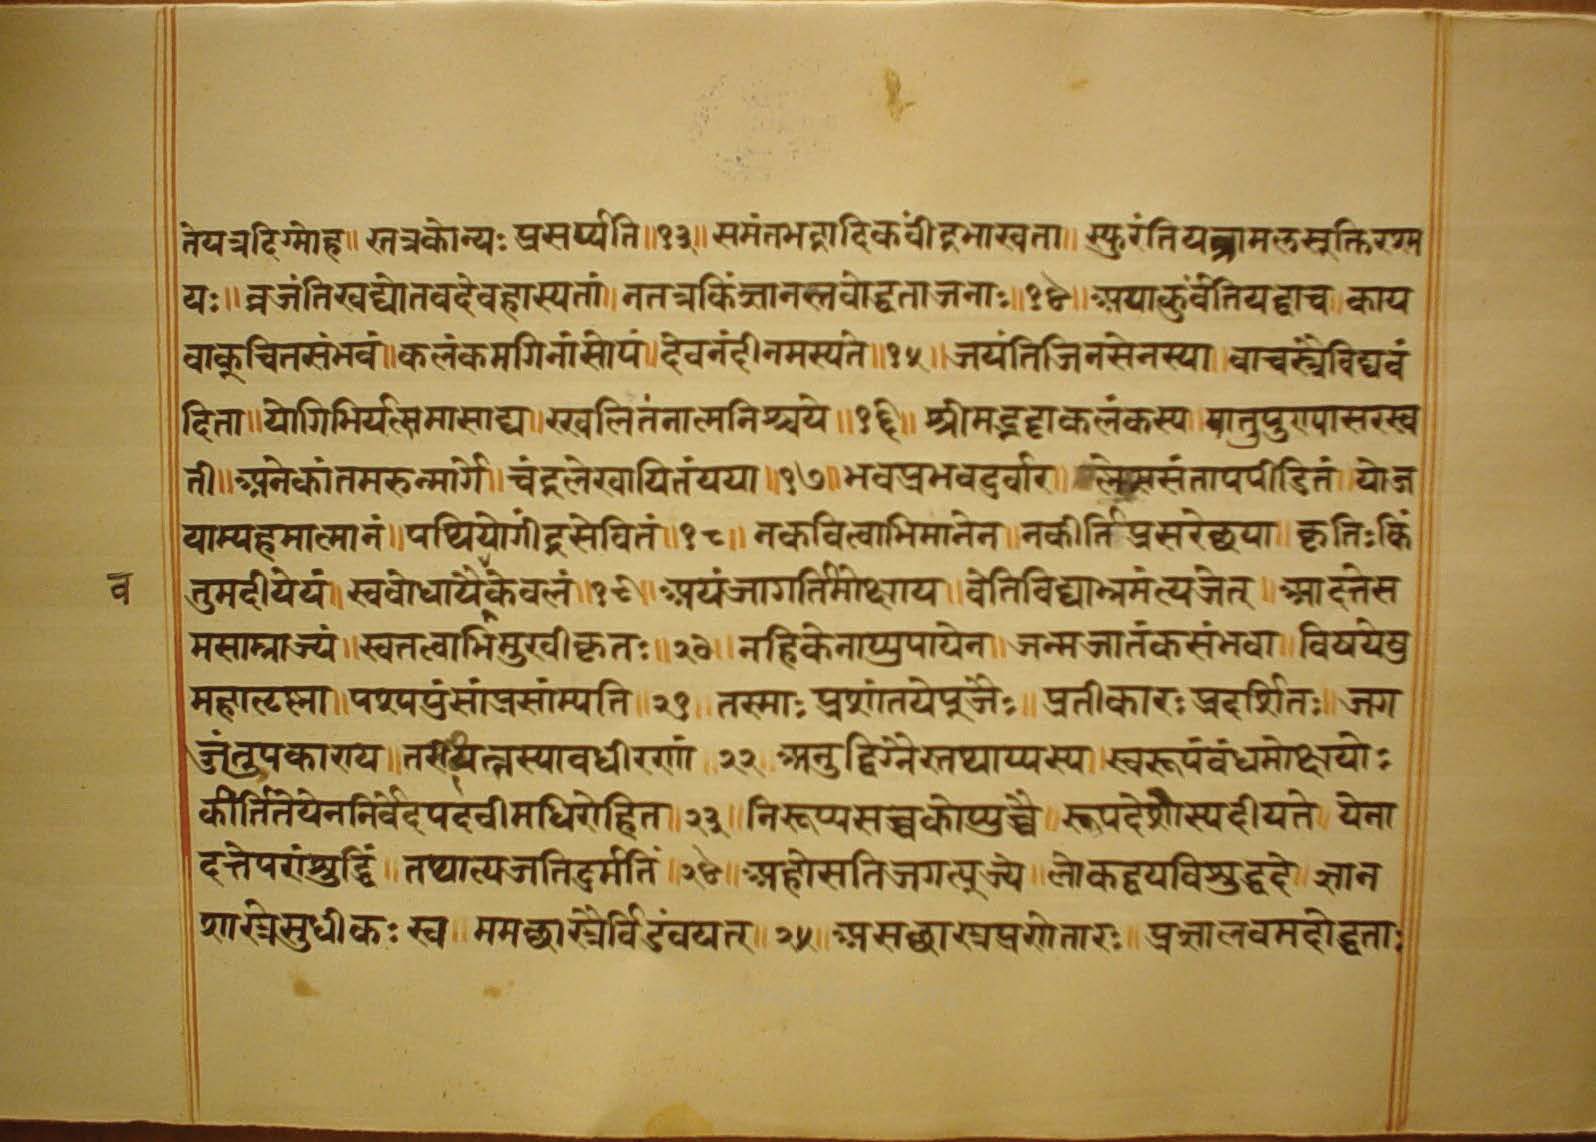 तेयत्रदिग्मोह॥ स्तत्रकोन्यः प्रसर्प्पति॥१३॥ समंतभद्रादिकवींद्रभास्वता॥ स्फुरंतियत्रामलसूक्तिरश्म
यः॥ व्रजंतिखद्योतवदेवहास्यतां॥ नतत्रकिंज्ञानलवोद्धताजनाः॥१४॥ अपाकुर्वंतियद्वाच काय
वाक्चितसंभवं॥कलंकमगिनांसोयं॥देवनंदीनमस्यते॥१५॥ जयंतिजिनसेनस्या॥वाचस्त्रैविद्यवं
दिता॥योगिभिर्यत्समासाद्य॥स्खलितंनात्मनिश्चये॥१६॥ श्रीमद्भट्टाकलंकस्य॥पातुपुण्यासरस्व
ती॥अनेकांतमरुन्मार्गे॥चंद्रलेखायितंयया॥१७॥भवप्रभवदुर्वार॥ संतापपीडितं॥योज
याम्यहमात्मानं॥पथियोगींद्रसेवितं॥१८॥ नकवित्वाभिमानेन॥नकीर्तिप्रसरेछया॥कृतिःकिं
व
तुमदीयेयं॥स्वबोधायैकेवलं॥१९॥अयंजागर्तिमोक्षाय॥वेतिविद्याभ्रमंत्यजेत्॥आदत्तेस
मसाम्राज्यं॥स्वतत्वाभिमुखीकृतः॥२०॥नहिकेनाप्युपायेन॥जन्मजातंकसंभवा॥विषयेषु
महातृष्णा॥पश्यपुंसांप्रसांम्पति॥२१॥तस्माः प्रशांतयेपूजैः॥प्रतीकारः प्रदर्शितः॥जग
ज्जंतुपकाराय॥ २२ अनुद्विग्नैस्तथाप्यस्य॥स्वरूपंबंधमोक्षयोः
कीर्तितेयेननिर्वेदपदवीमधिरोहति॥२३॥निरूप्यसच्चकोप्युच्चै॥ येना
दत्तेपरांशुद्धिं॥तथात्यजतिदुर्मतिं॥२४॥अहोसतिजगत्पूज्ये॥लोकद्वयविशुद्धदे॥ज्ञान
शास्त्रेसुधीकः स्व॥ममच्छास्त्रैर्विडंबयेत्॥२५॥असच्छास्त्रप्रणेतारः॥प्रज्ञालवमदोद्धताः